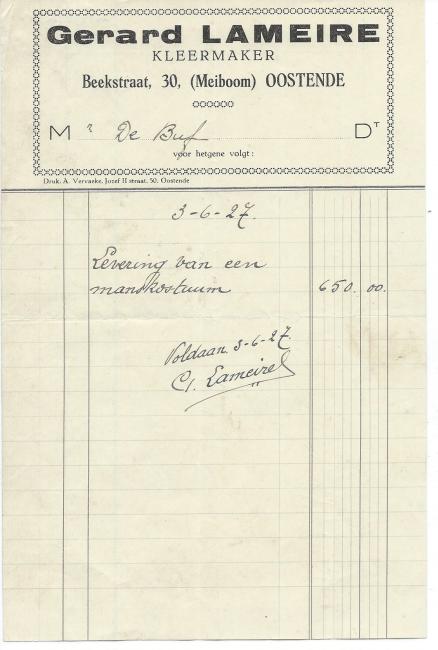 Gerard LAMEIRE
KLEERMAKER
Beekstraat, 30, (Meiboom) OOSTENDE
Mr De Buf Dt
voor hetgene volgt:
Druk. A. Vervaeke, Jozef II straat, 50, Oostende
3-6-27.
Levering van een
manskostuum 650.00.
Voldaan 3-6-27
G. Lameire